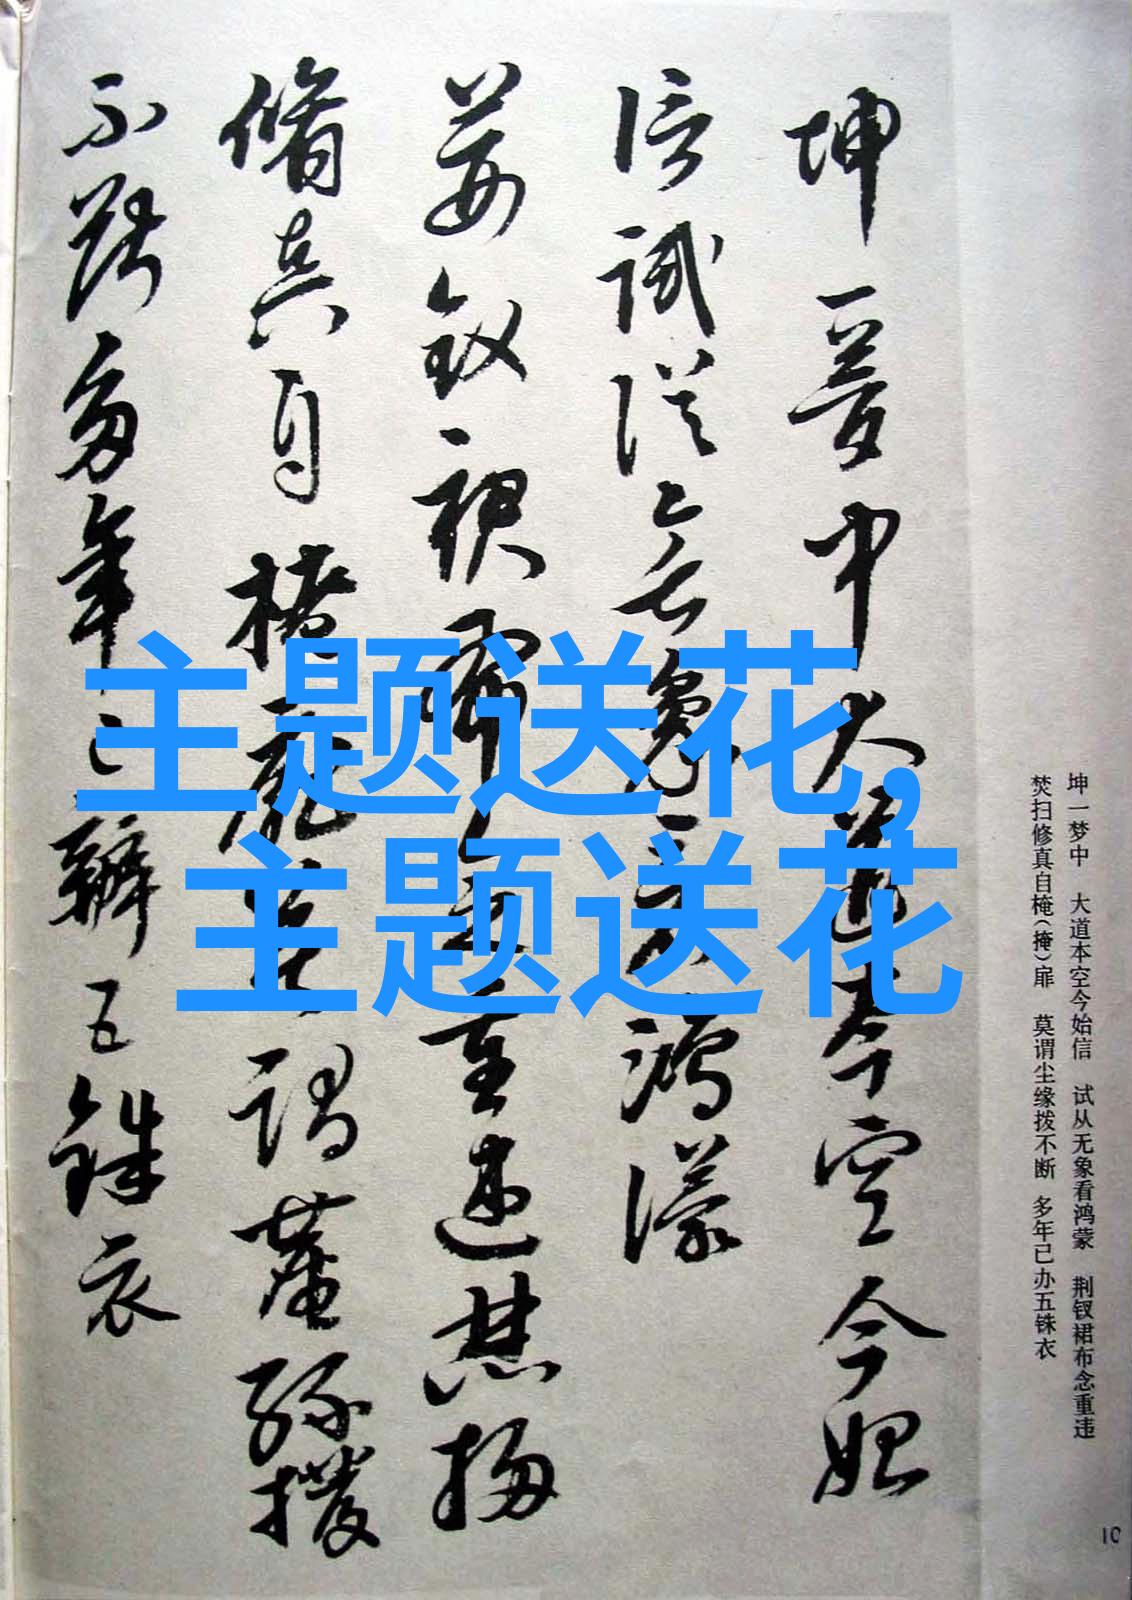 坤一夢中大道本空今始
信試從無象看鴻濛
荆釵裙布念重違焚掃
脩真自掩扉莫謂塵緣撥
不斷多年已辦五銖衣
坤一梦中 大道本空今始信 试从无象看鸿蒙 荆钗裙布念重违
焚扫修真自(掩)扉 莫谓尘缘拨不断 多年已办五铢衣
10
主题送花,
主题送花